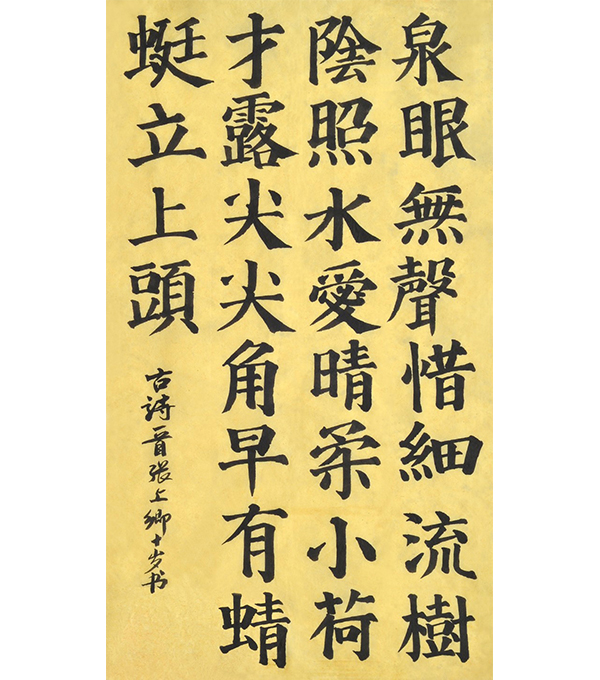 泉眼無聲惜細流樹
陰照水愛晴柔小荷
才露尖尖角早有蜻
蜓立上頭
古詩一首張上卿十岁书